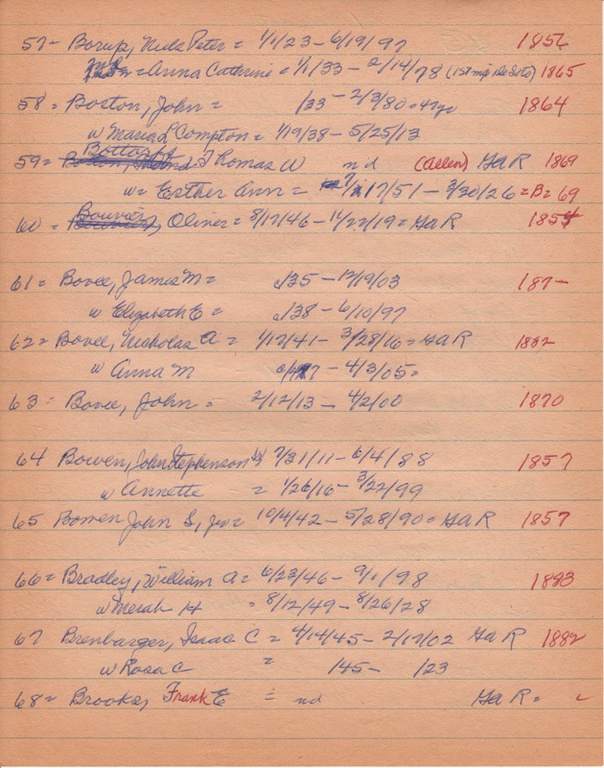 57- Borup, Niels Peter = 1/1/23 - 6/19/97 1856
= Anna Cathrine = 1/1/33 - 2/14/78 (1st 1865
58 = Boston, John = /33 - 2/3/80 = 47yr 1864
w Maria L Compton = 1/19/38 - 5/25/13
Bottorff
59 = Thomas W nd (Allen) Ga R 1869
w = Esther Ann = 7/17/51 - 3/30/26 = B = 69
Bouvier
60 = Oliver = 8/12/46 - 11/22/19 = Ga R 1854
61 = Bovee, James M = c/35 - 12/19/03 187-
w Elizabeth E = c/38 - 6/10/97
62 = Bovee, Nicholas A = 1/12/41 - 3/28/16 = Ga R 1882
w Anna M - 4/3/05 =
63 = Bovee, John = 2/12/13 - 4/2/00 1870
64 Bowen, John Stephenson 7/31/11 - 6/4/88 1857
w Annette = 1/26/16 - 3/22/99
65 Bowen John S, Jr = 10/4/42 - 5/28/90 = Ga R 1857
66 = Bradley, William A = 6/23/46 - 9/1/98 1883
w Merah H = 8/12/49 - 8/26/28
67 Brenbarger, Isaac C = 4/14/45 - 2/17/02 Ga R 1882
w Rosa C = /45 - /23
68 = Brooks, Frank E = nd Ga R =